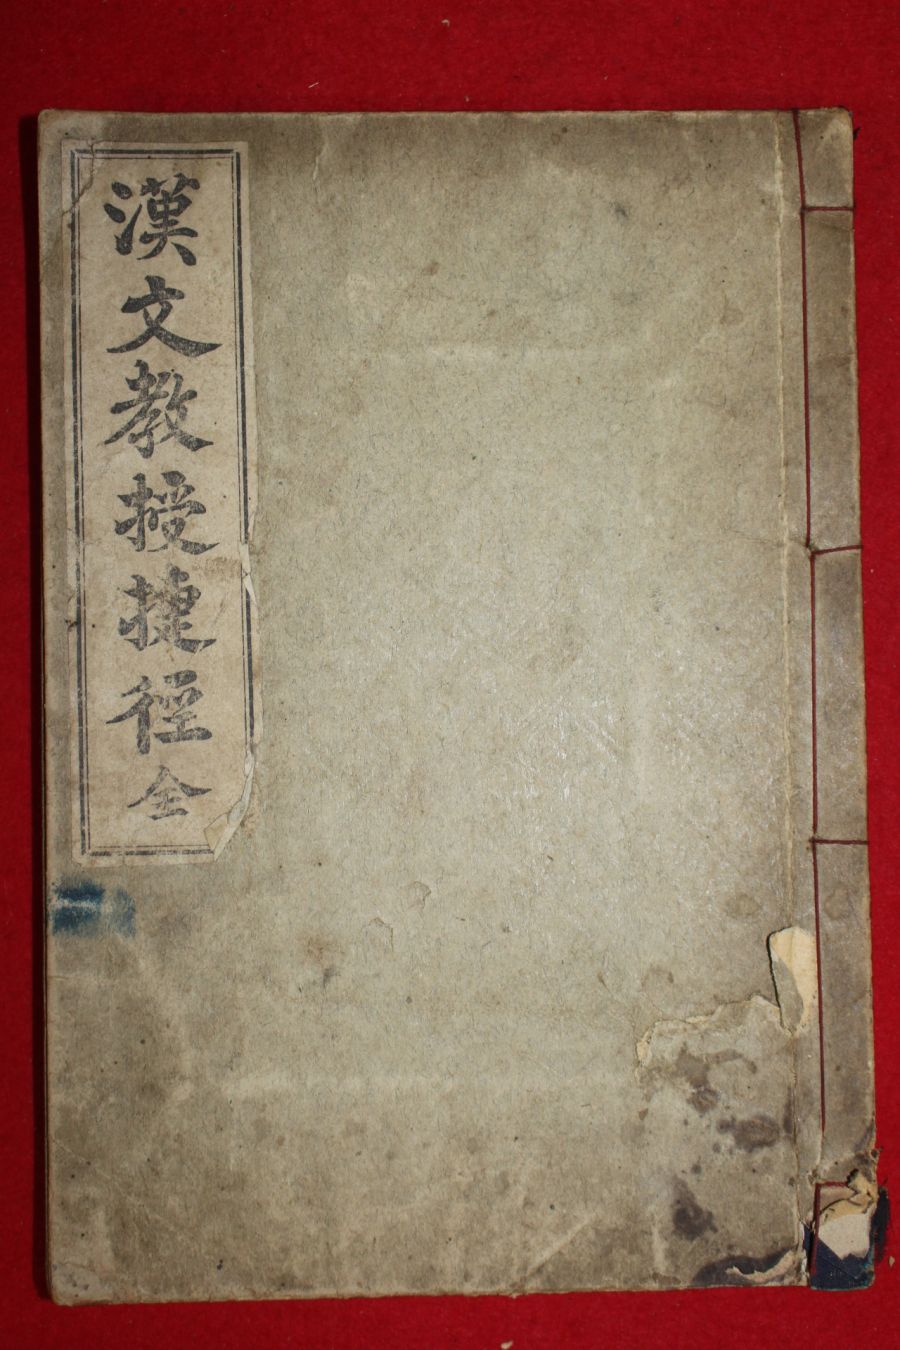 漢文教授捷徑全